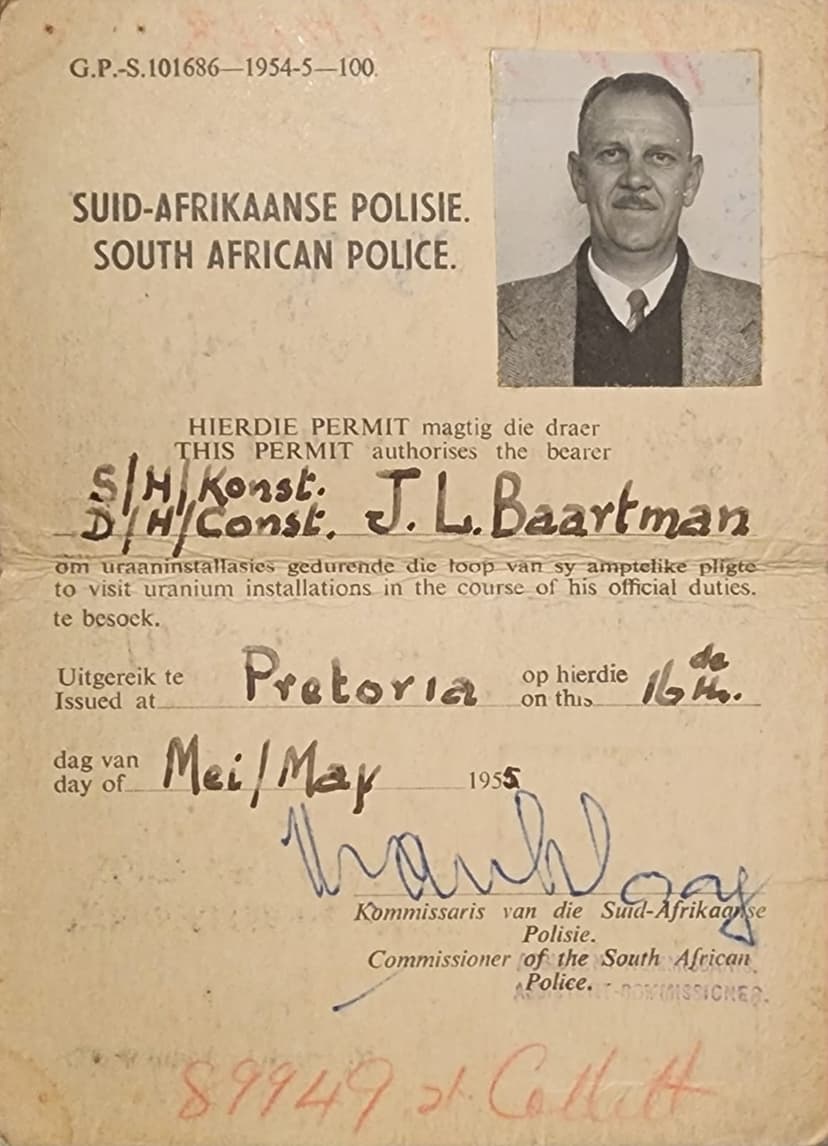 G.P.-S.101686—1954-5—100.
SUID-AFRIKAANSE POLISIE.
SOUTH AFRICAN POLICE.
HIERDIE PERMIT magtig die draer
THIS PERMIT authorises the bearer
S/H/Konst.
D/H/Const. J. L. Baartman
om uraaninstallasies gedurende die loop van sy amptelike pligte
to visit uranium installations in the course of his official duties.
te besoek.
Uitgereik te
Issued at Pretoria
op hierdie
on this 16de th.
dag van
day of Mei/May 1955
Kommissaris van die Suid-Afrikaanse
Polisie.
Commissioner of the South African
Police.
ASSISTENT-COMMISSIONER.
89949